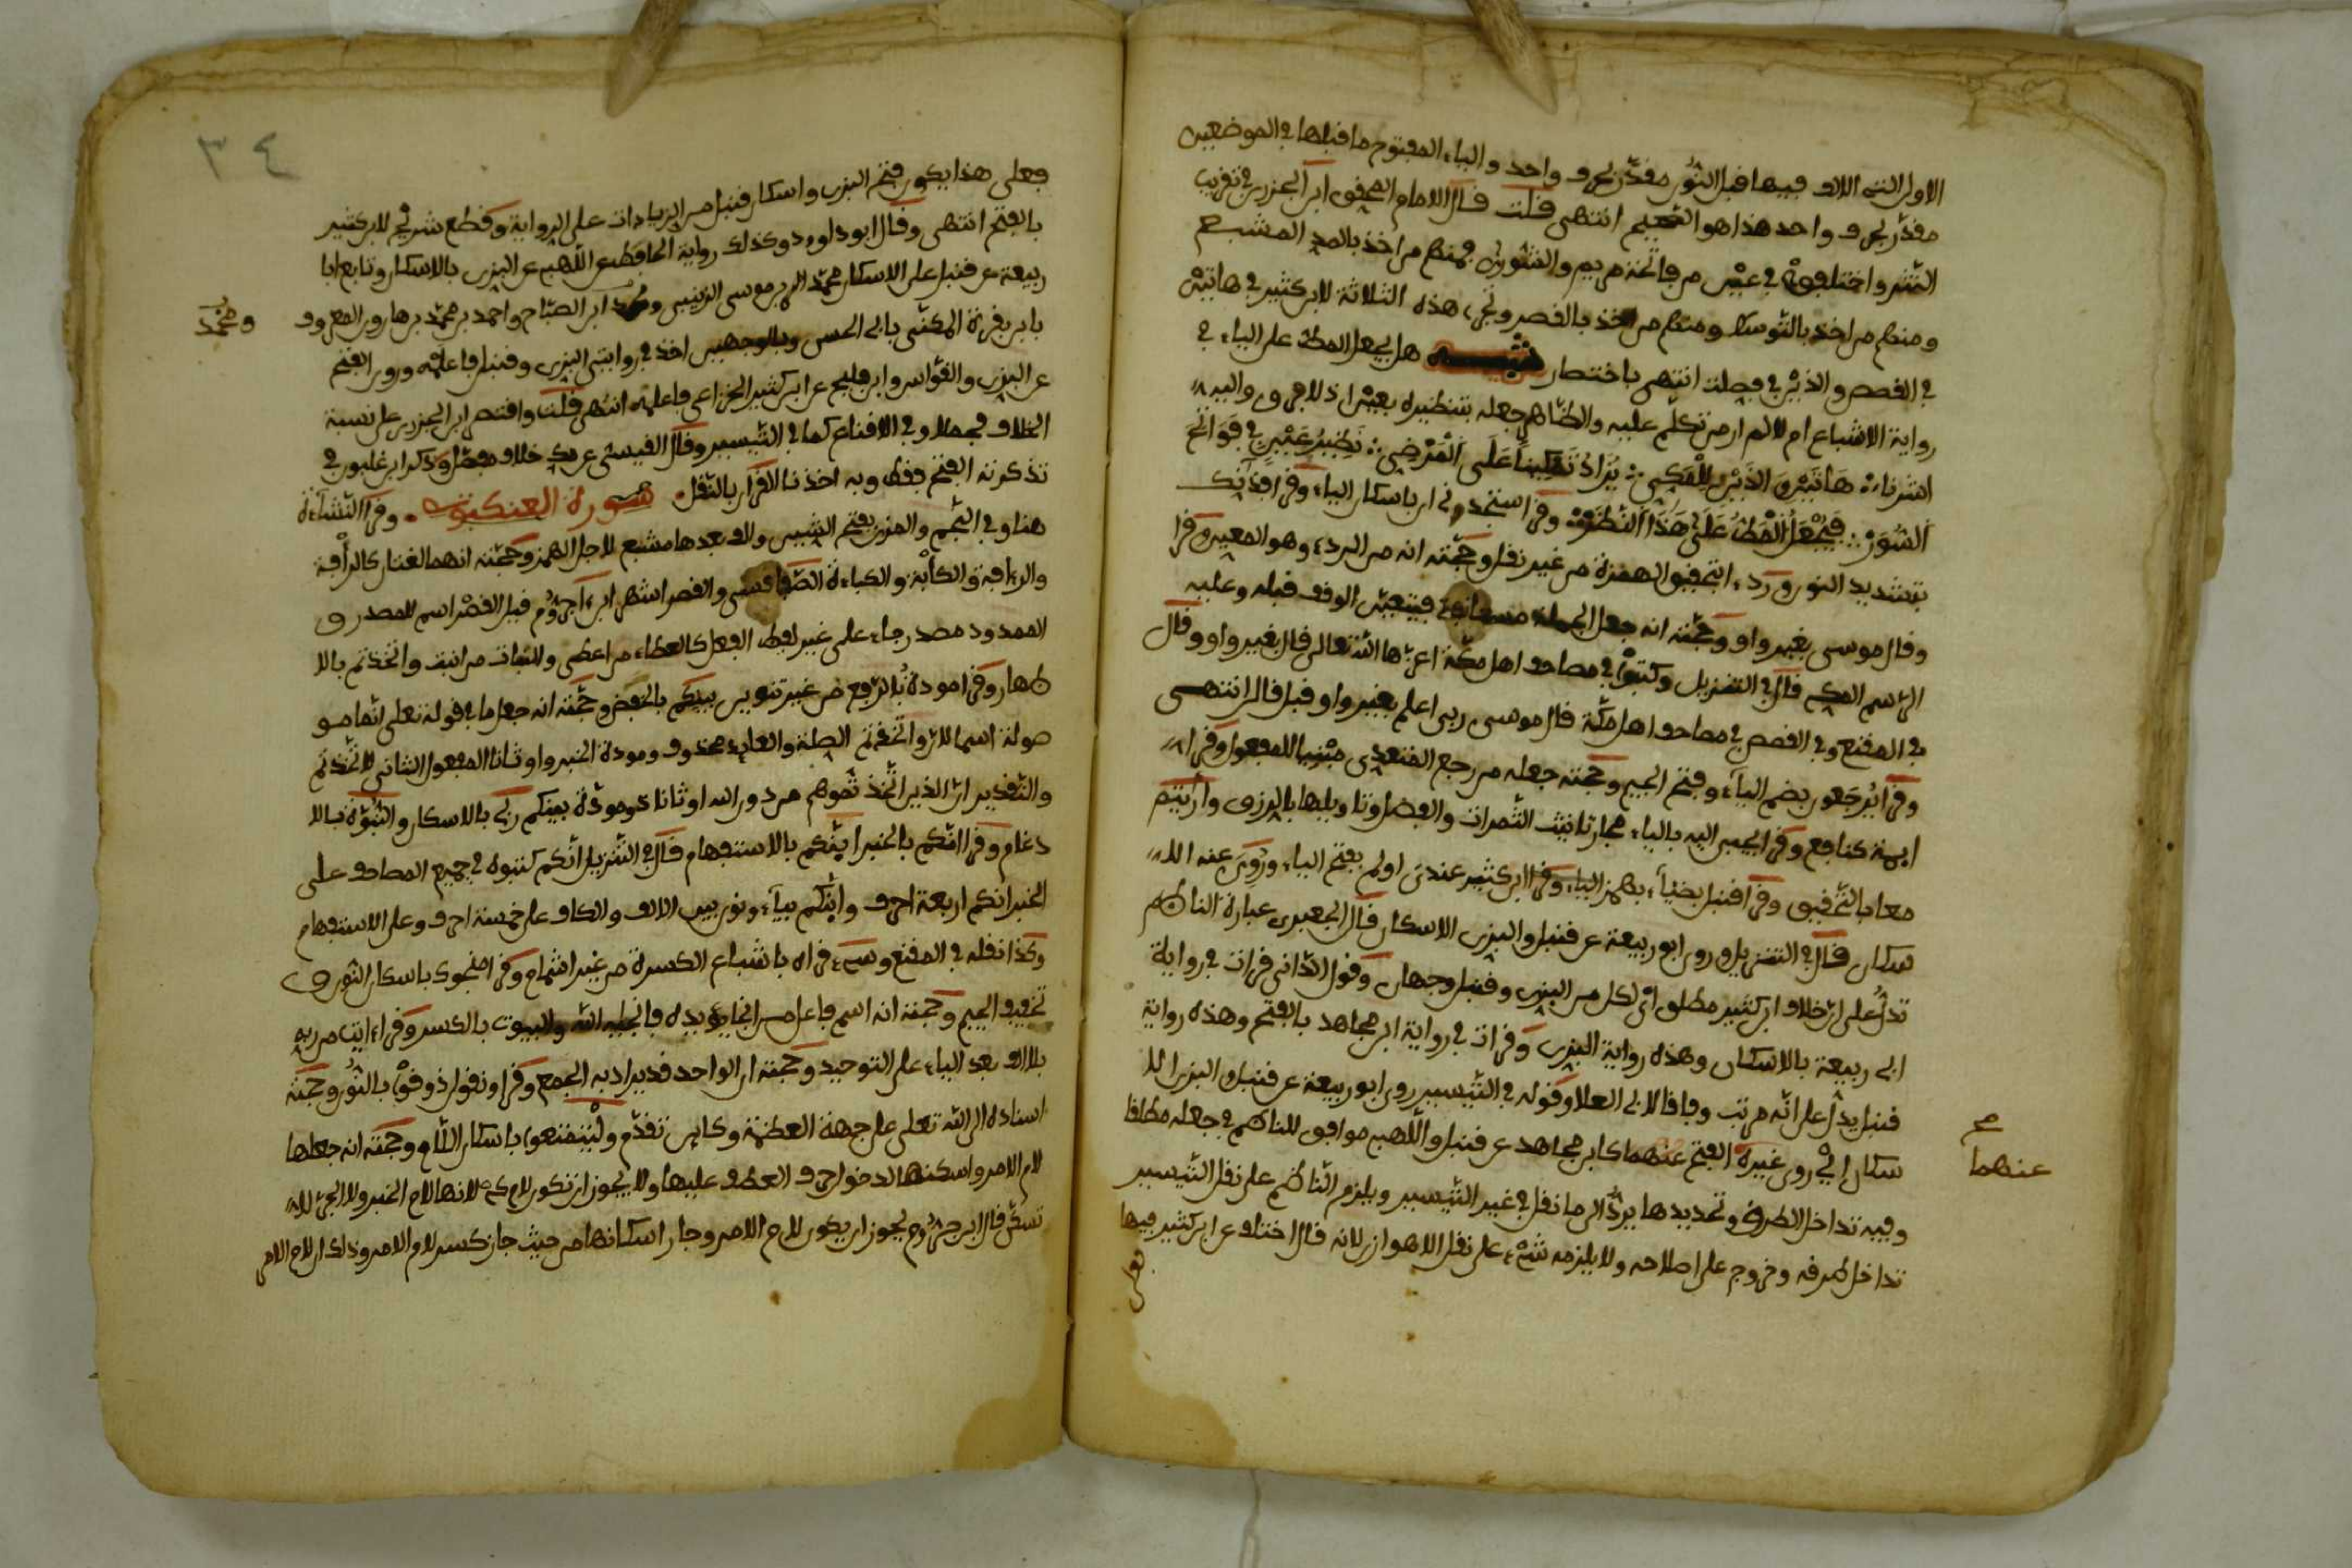 الاولى التى الالف فيها قبل النون مقدّر بحرف واحد والياء المفتوح ما قبلها في الموضعين
مقدّر بحرف واحد هذا هو الصحيح انتهى قلت قال الامام المحقق ابن الجزري في تقريب
النشر واختلفوا في عين من فاتحة مريم والشورى فمنهم من اخذ بالمد المشبع
ومنهم من اخذ بالتوسط ومنهم من اخذ بالقصر وتجرى هذه الثلاثة لابن كثير في هاتين
في القصص والذين في فصلت انتهى باختصار تنبيه هل يحمل المط على الياء في
رواية الاشباع ام لا لم ار من تكلم عليه والظاهر جعله بتنظيره بعين اذ لا فرق واليه
اشرنا هَاتَيْنِ الذَيْنِ لِلْمَكِي يُزَادُ تَمْكِيناً عَلَى الْمَرْضِي نَظِيرُ عَيْنٍ في فَوَاتِحَ
السُّوَرْ فَيُجْعَلُ الْمَطُّ عَلَى هَذَا النَّظَرْ وقرا ستجدني ان باسكان الياء وقرا فذانك
بتشديد النون ردءا بتحقيق الهمزة من غير نقل وحجّته انه من الردء وهو المعين وقرا
وقال موسى بغير واو وحجّته انه جعل الجملة مستانفة فيتعين الوقف قبله وعليه
الرسم المكي قال في التنزيل وكتبوا في مصاحف اهل مكّة اعزّها الله تعالى قال بغير واو وقال
في المقنع وفي القصص في مصاحف اهل مكّة قال موسى ربى اعلم بغير واو قبل قال انتهى
وقرا يُرجَعون بضم الياء وفتح الجيم وحجّته جعله من رجع المتعدى مبنيا للمفعول وقرا
ايمة كنافع وقرا يجبى اليه بالياء مجاز تانيث الثمرات والفصل وتاويلها بالرزق وارايتم
معا بالتحقيق وقرا قنبل بضئاء بهمز الياء وقرا ابن كثير عندى اولم بفتح الياء وروى عنه
سكان قال في التنزيل وروى ابو ربيعة عن قنبل والبزى الاسكان قال الجعبرى عبارة الناظم
تدل على ان خلاف ابن كثير مطلق اى لكل من البزى وقنبل وجهان وقول الدانى قرات في رواية
ابى ربيعة بالاسكان وهذه رواية البزى وقرات في رواية ابن مجاهد بالفتح وهذه رواية
قنبل يدل على انّه مرتب وفاقا لابى العلا وقوله في التيسير روى ابو ربيعة عن قنبل والبزى الا
سكان اي روى غيره الفتح عنهما كابن مجاهد عن قنبل واللهبى موافق للناظم في جعله مطلقا
عنهما
وفيه تداخل الطرق وتحديدها يردّ الى ما نقل في غير التيسير ويلزم الناظم على نقل التيسير
تداخل طرفه وخروج على اصلاحه ولا يلزمه شىء على نقل الاهوازى لانه قال اختلف عن ابن كثير فيها
فعلى
٣٤
فعلى هذا يكون فتح البزى واسكان قنبل من الزيادات على الرواية وقطع شريح لابن كثير
بالفتح انتهى وقال ابو داوود وكذلك رواية الحافظ عن اللهبى عن البزى بالاسكان وتابع ابا
ربيعة عن قنبل على الاسكان محمد بن موسى الزينبى ومحمد ابن الصبّاح واحمد بن محمّد بن هارون المعروف
ومحمد
بابن بقرة المكنّى بابى الحسن وبالوجهين اخذ في روايتى البزى وقنبل فاعلمه وروى الفتح
عن البزى والقوّاس وابن فليح عن ابن كثير الخزاعى فاعلمه انتهى قلت واقتصر ابن الجزرى على نسبة
الخلاف مجملا وفي الاقناع كما في التيسير وقال القيسى عن مك خلاف مفصّل وذكر ابن غلبون في
تذكرته الفتح فقط وبه اخذنا القرآن بالنقل سورة العنكبوت وقرا النشاءة
هنا وفي النجم والمزن بفتح الشين والف بعدها مشبع لاجل الهمز وحجّته انهما لغتان كالرأفة
والرءافة والكأبة والكباءة الصّفاقسى والقصر اشهر ابن ءاجرّوم قيل القصر اسم للمصدر و
الممدود مصدر جاء على غير لفظ الفعل كالعطاء من اعطى والنبات من انبت واتخذتم بالا
ظهار وقرا مودةُ بالرفع من غير تنوين بينكم بالخفض وحجّته انه جعل ما في قوله تعلى انّما مو
صولة اسما لانّ واتخذتم الصلة والعايد محذوف ومودة الخبر واوثانا المفعول الثانى لاتخذتم
والتقدير انّ الذين اتّخذتموهم من دون الله اوثانا ذو مودة بينكم ربّى بالاسكان والنبوّة بالا
دغام وقرا انّكم بالخبر اينّكم بالاستفهام قال في التنزيل انّكم كتبوه في جميع المصاحف على
الخبر انكم اربعة احرف واينّكم بياء ونون بين الالف والكاف على خمسة احرف وعلى الاستفهام
وكذا نقله في المقنع وسىء قراه باشباع الكسرة من غير اشمام وقرا منجوك باسكان النون و
تخفيف الجيم وحجّته انه اسم فاعل من انجا يؤيده فانجيه الله والبيوت بالكسر وقرا ءايت من ربه
بلا الف بعد الياء على التوحيد وحجّته ان الواحد قد يراد به الجمع وقرا ونقول ذوقوا بالنون وحجّته
اسناده الى الله تعلى على جهة العظمة وكاين تقدّم ولْيتمتعوا باسكان اللام وحجّته انه جعلها
لام الامر واسكنها لدخول حرف العطف عليها ولا يجوز ان تكون لام كى لانها لام الخبر ولام الجرّ لا
تسكّن قال ابن ءاجرّوم يجوز ان يكون لام الامر وجاز اسكانها من حيث جاز كسر لام الامر وذلك ان لام الامر